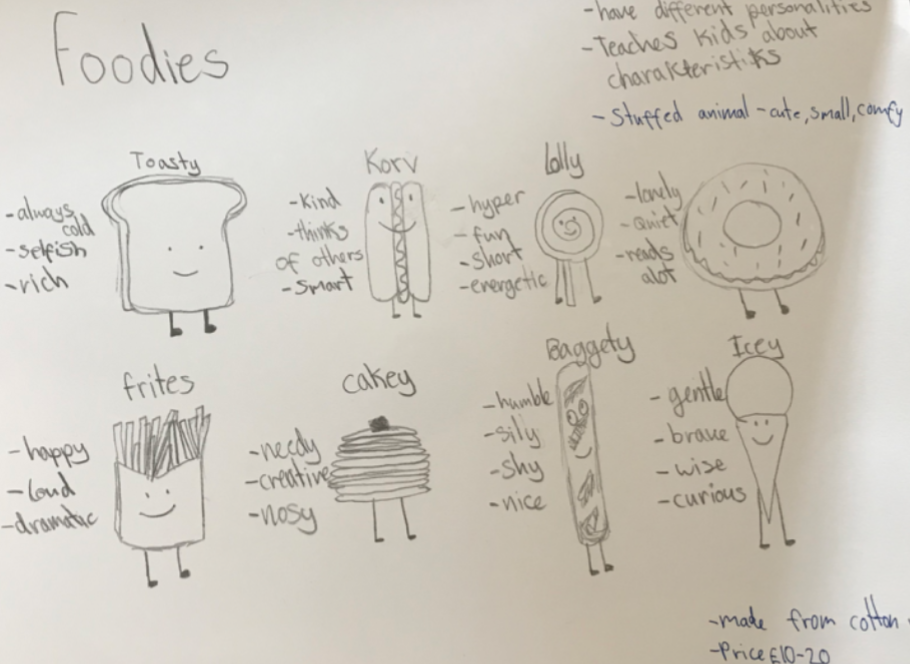 Foodies
- have different personalities
- Teaches kids about
charakteristiks
- Stuffed animal - cute, small, comfy
Toasty
- always
cold
- selfish
- rich
Korv
- Kind
- thinks
of others
- Smart
Lolly
- hyper
- fun
- short
- energetic
- lonely
- quiet
- reads
alot
frites
- happy
- Loud
- dramatic
cakey
- needy
- creative
- nosy
Baggety
- humble
- sily
- shy
- nice
Icey
- gentle
- brave
- wise
- curious
- made from cotton
- Price £10-20